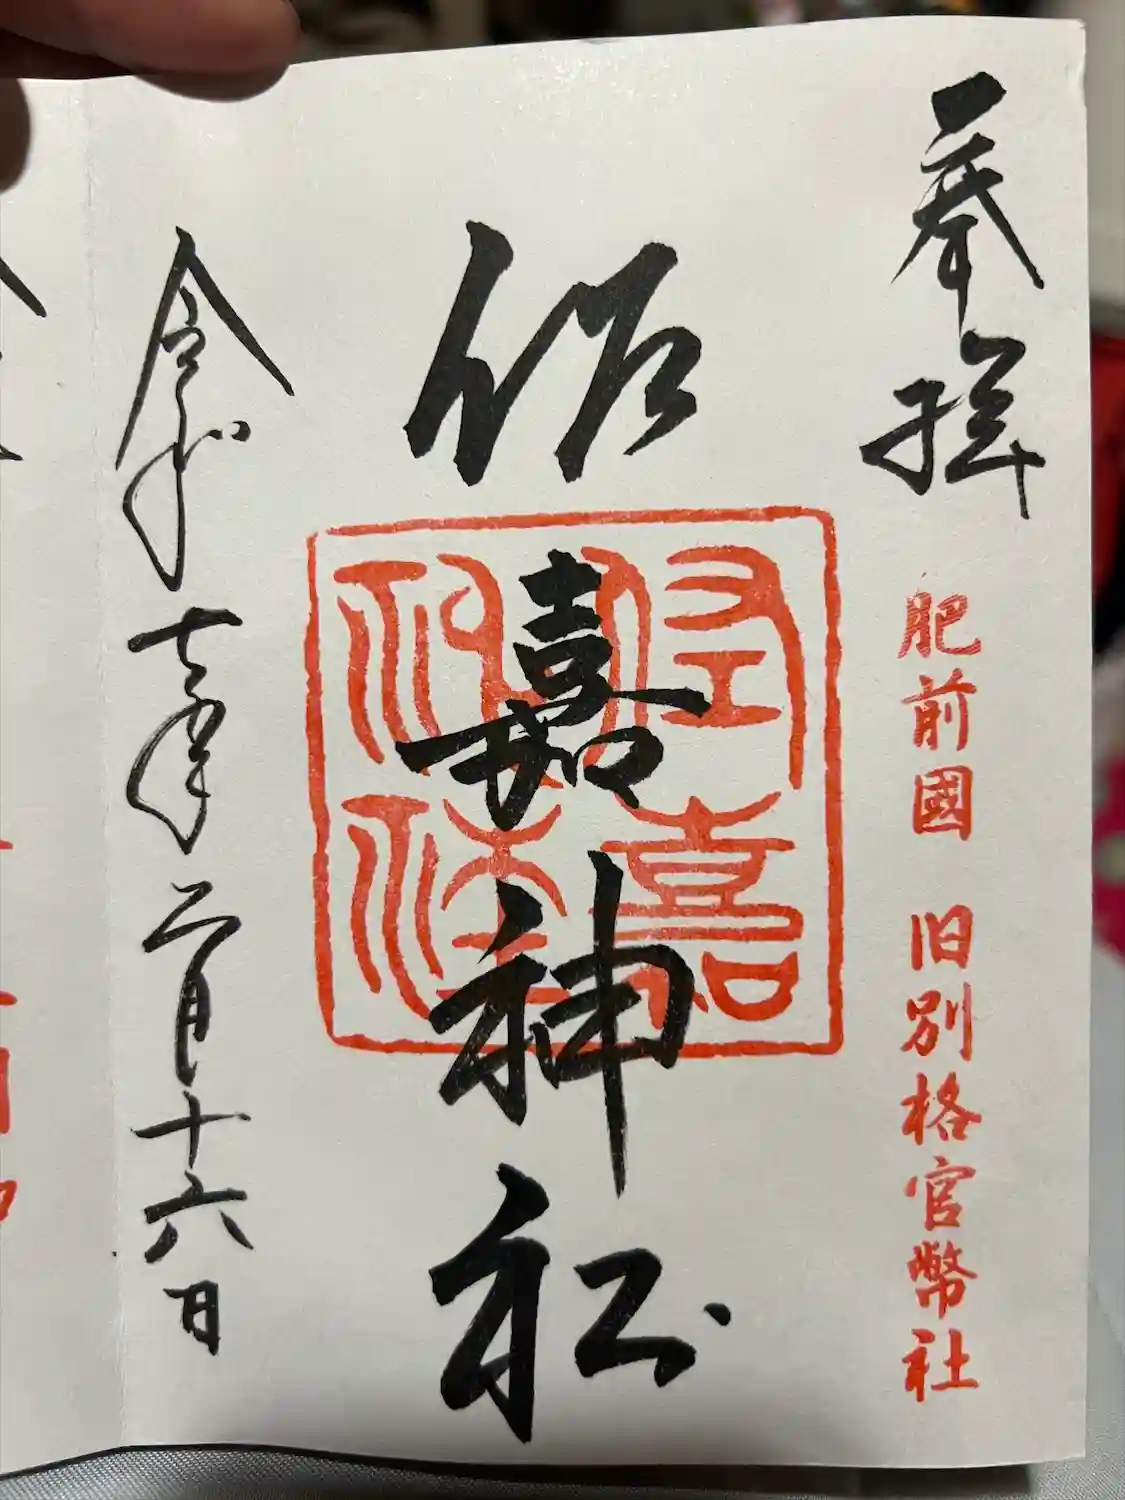 奉拝
肥前國 旧別格官幣社
佐嘉神社
佐嘉
神社
令和七年二月十六日